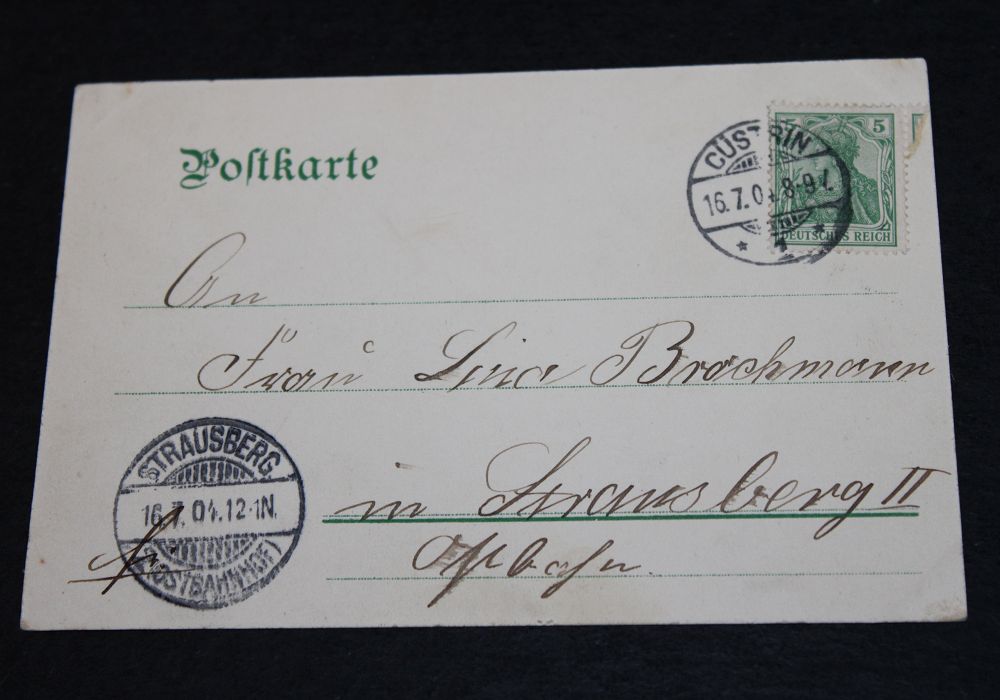 Postkarte
5 5
CÜSTRIN
16.7.04. 8-9V.
* 1 *
DEUTSCHES REICH
An
Frau Lina Brachmann
in Strausberg II
Ostbahn.
STRAUSBERG
16.7.04.12-1N.
(OSTBAHNHOF)